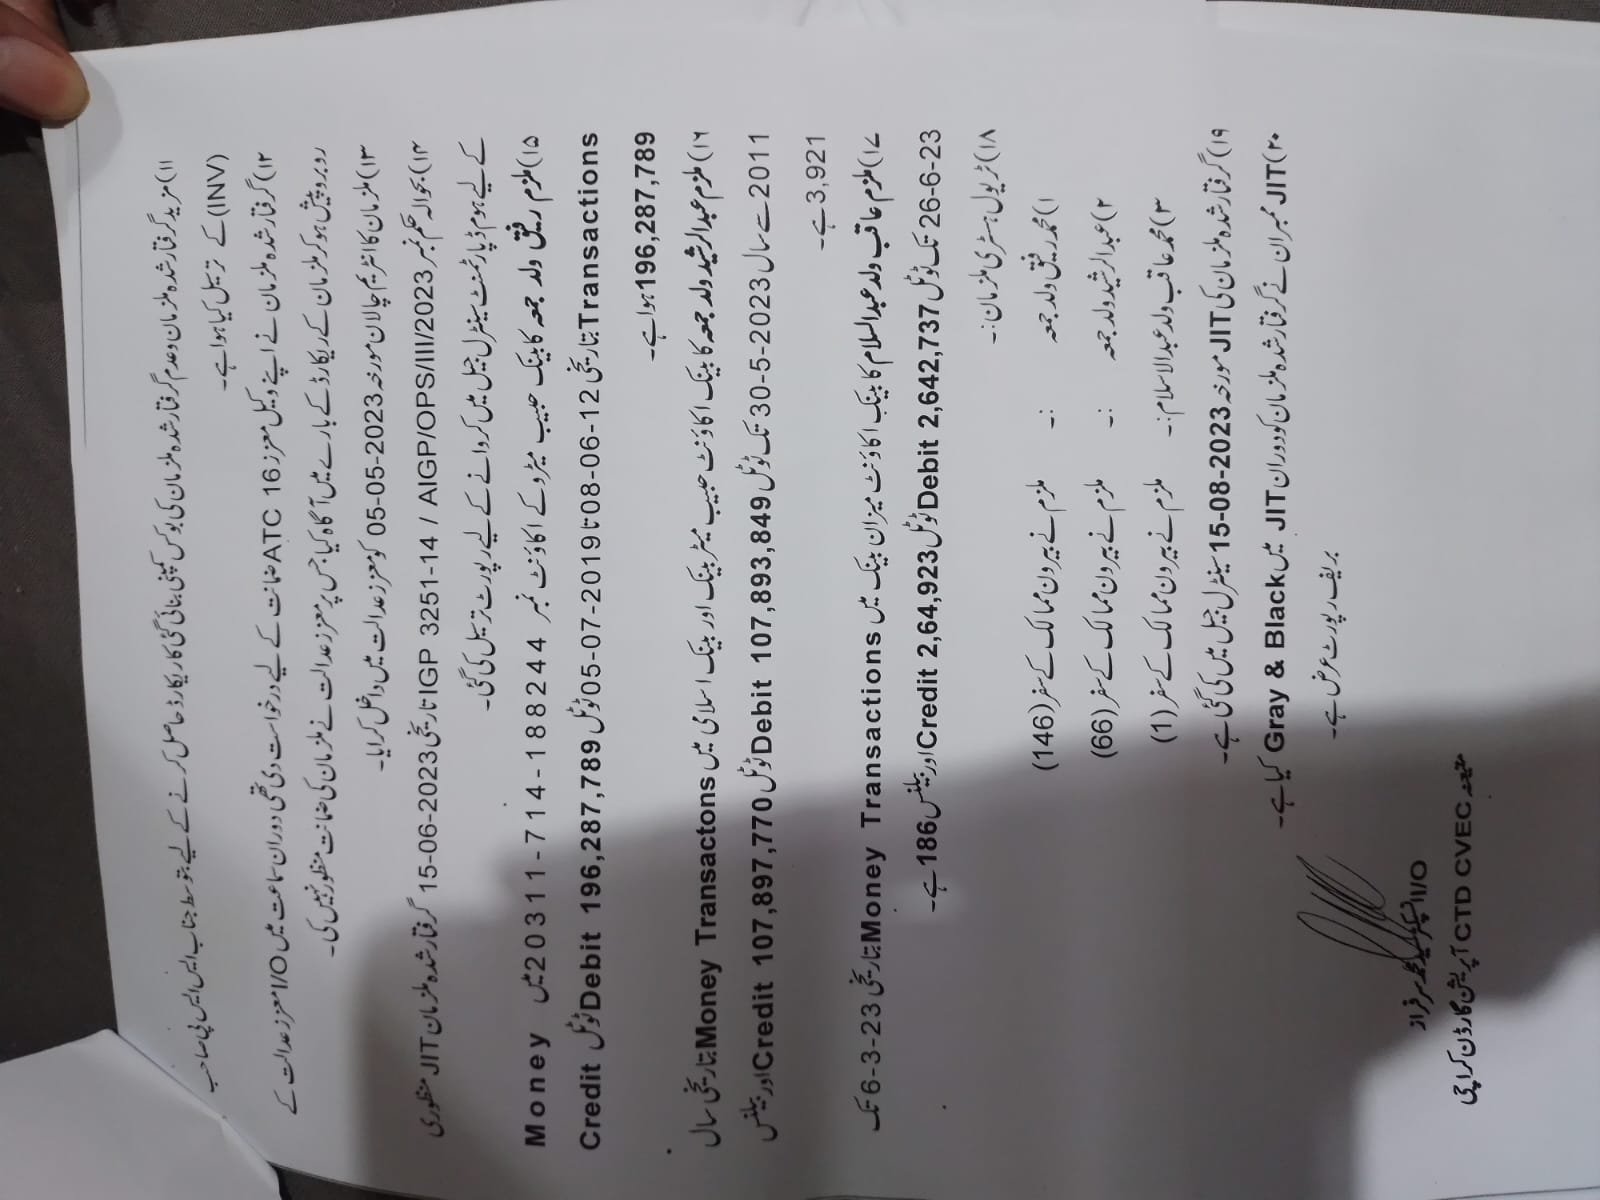 ۱۱)مزید گرفتار شدہ ملزمان و عدم گرفتار شدہ ملزمان کی بوگس کمپنی بنائی گئی کا ریکارڈ حاصل کرنے کے لیے بتوسط جناب ایس ایس پی صاحب
(INV) کے ترسیل کیا ہوا ہے۔
۱۲)گرفتار شدہ ملزمان نے اپنے وکیل معزز ATC 16 ضمانت کے لیے درخواست دی تھی دوران سماعت میں I/O معزز عدالت کے
روبرو پیش ہو کر ملزمان کے ریکارڈ کے بارے میں آگاہ کیا جس پر معزز عدالت نے ملزمان کی ضمانت منظور نہیں کی۔
۱۳)ملزمان کا انٹریم چالان مورخہ 05-05-2023 کو معزز عدالت میں داخل کرایا۔
۱۴)بحوالہ حکم نمبر IGP 3251-14 / AIGP/OPS/III/2023 تاریخی 15-06-2023 گرفتار شدہ ملزمان JIT منظوری
کے لیے ہوم ڈپارٹمنٹ سینٹرل جیل میں کروانے کے لیے رپورٹ ترسیل کی گئی۔
۱۵)ملزم رفیق ولد جمعہ کا بینک حبیب میٹرو کے اکاؤنٹ نمبر 20311-714-188244 میں Money
Transactions تاریخی 12-06-08 تا 05-07-2019 ٹوٹل Debit 196,287,789 ٹوٹل Credit
196,287,789 ہوا ہے۔
۱۶)ملزم عبدالرشید ولد جمعہ کا بینک اکاؤنٹ حبیب میٹر بینک اور بینک اسلامی میں Money Transactons تاریخی سال
2011 سے سال 30-5-2023 تک ٹوٹل Debit 107,893,849 ٹوٹل Credit 107,897,770 اور بیلنس
3,921 ہے۔
۱۷)ملزم عاقب ولد عبدالسلام کا بینک اکاؤنٹ میزان بینک میں Money Transactions تاریخی 6-3-23 تک
26-6-23 تک ٹوٹل Debit 2,642,737 ٹوٹل Credit 2,64,923 اور بیلنس 186 ہے۔
۱۸)ٹریول ہسٹری ملزمان:۔
۱)محمد رفیق ولد جمعہ :۔ ملزم نے بیرون ممالک کے سفر (146)
۲)عبدالرشید ولد جمعہ :۔ ملزم نے بیرون ممالک کے سفر (66)
۳)محمد عاقب ولد عبدالاسلام:۔ ملزم نے بیرون ممالک کے سفر (1)
۱۹)گرفتار شدہ ملزمان کی JIT مورخہ 15-08-2023 سینٹرل جیل میں کی گئی ہے۔
۲۰)JIT ممبران نے گرفتار شدہ ملزمان کو دوران JIT میں Gray & Black کیا ہے۔
بریف رپورٹ عرض ہے۔
I/O انسپکٹر سید محمد سرفراز
متعینہ CTD CVEC آپریشن گارڈن کراچی